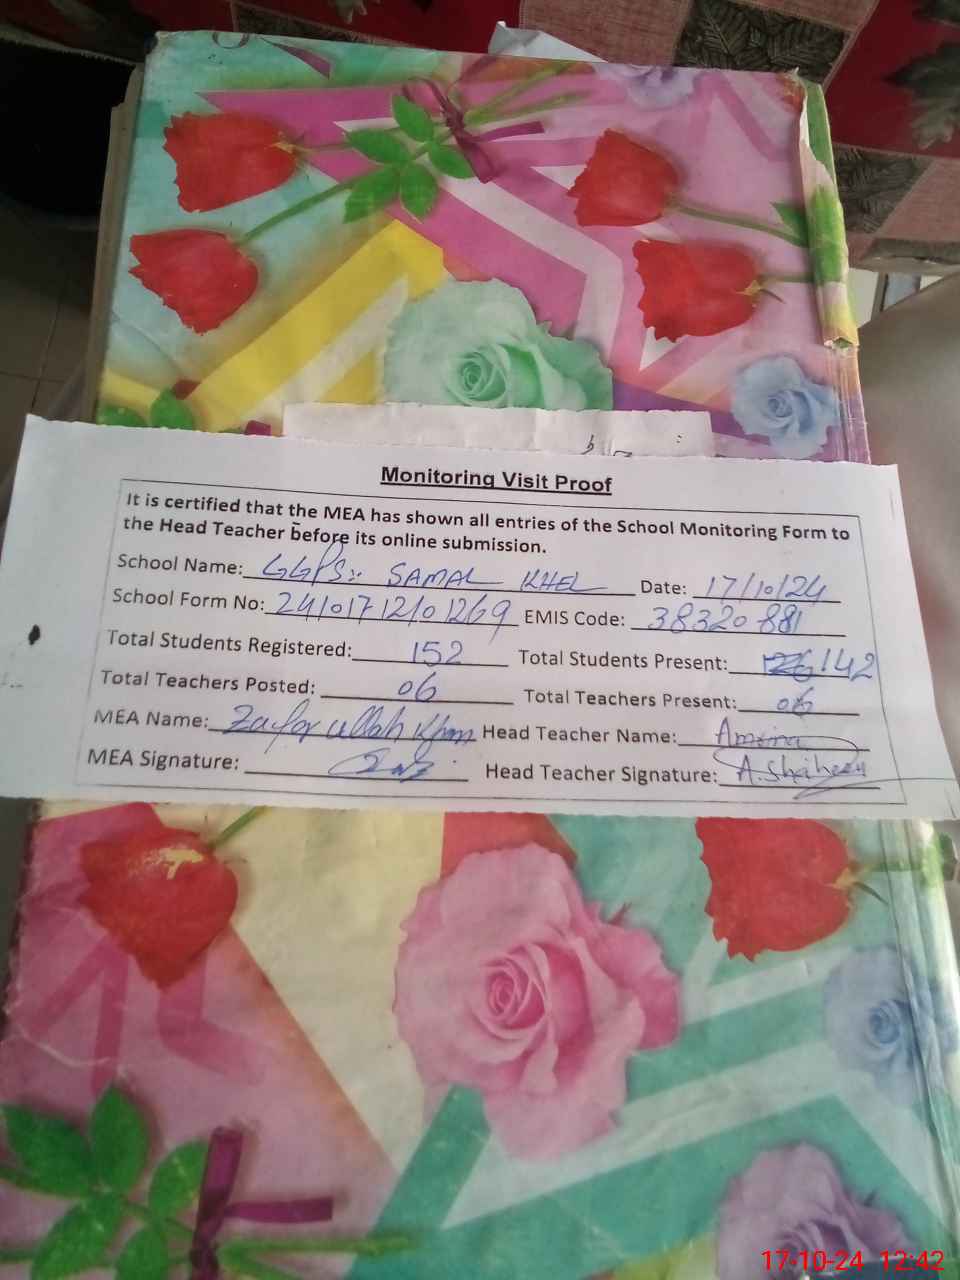 Monitoring Visit Proof
It is certified that the MEA has shown all entries of the School Monitoring Form to
the Head Teacher before its online submission.
School Name: GGPS: SAMAL KHEL Date: 17/10/24
School Form No: 241017 1201269 EMIS Code: 38320881
Total Students Registered: 152 Total Students Present: 142
Total Teachers Posted: 06 Total Teachers Present: 06
MEA Name: Zafar ullah Khan Head Teacher Name: Amina
MEA Signature: Head Teacher Signature: A.Shaheen
17-10-24 12:42